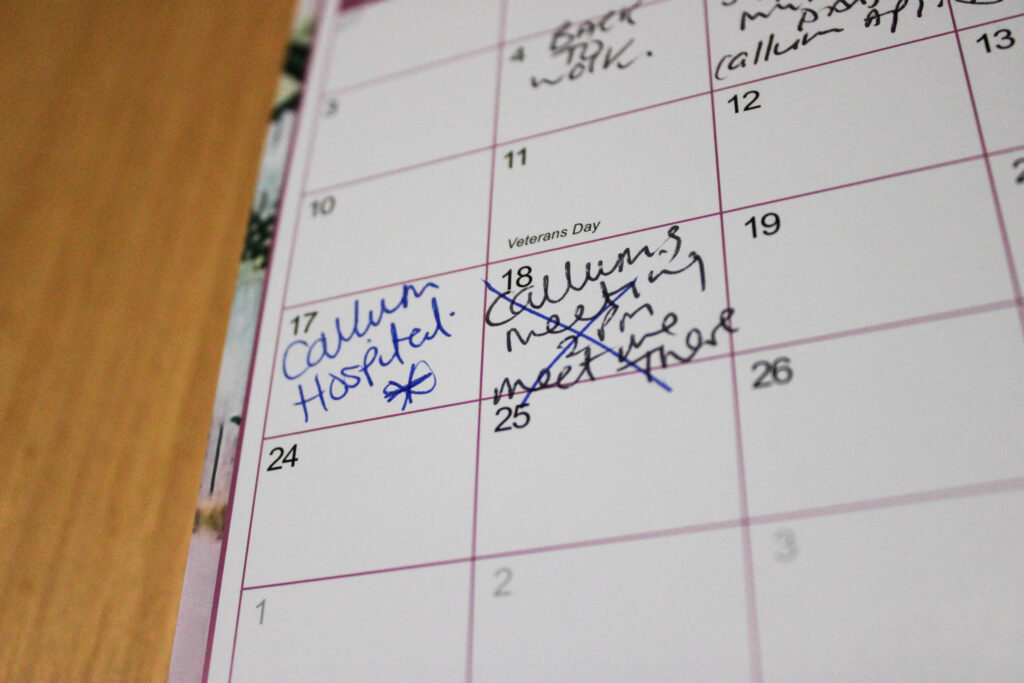 3
4
BACK
TO
work.
callum APP
10
11
Veterans Day
12
13
17
Callum
Hospital.
18
Callums
meeting
2pm
meet me
There
19
24
25
26
1
2
3